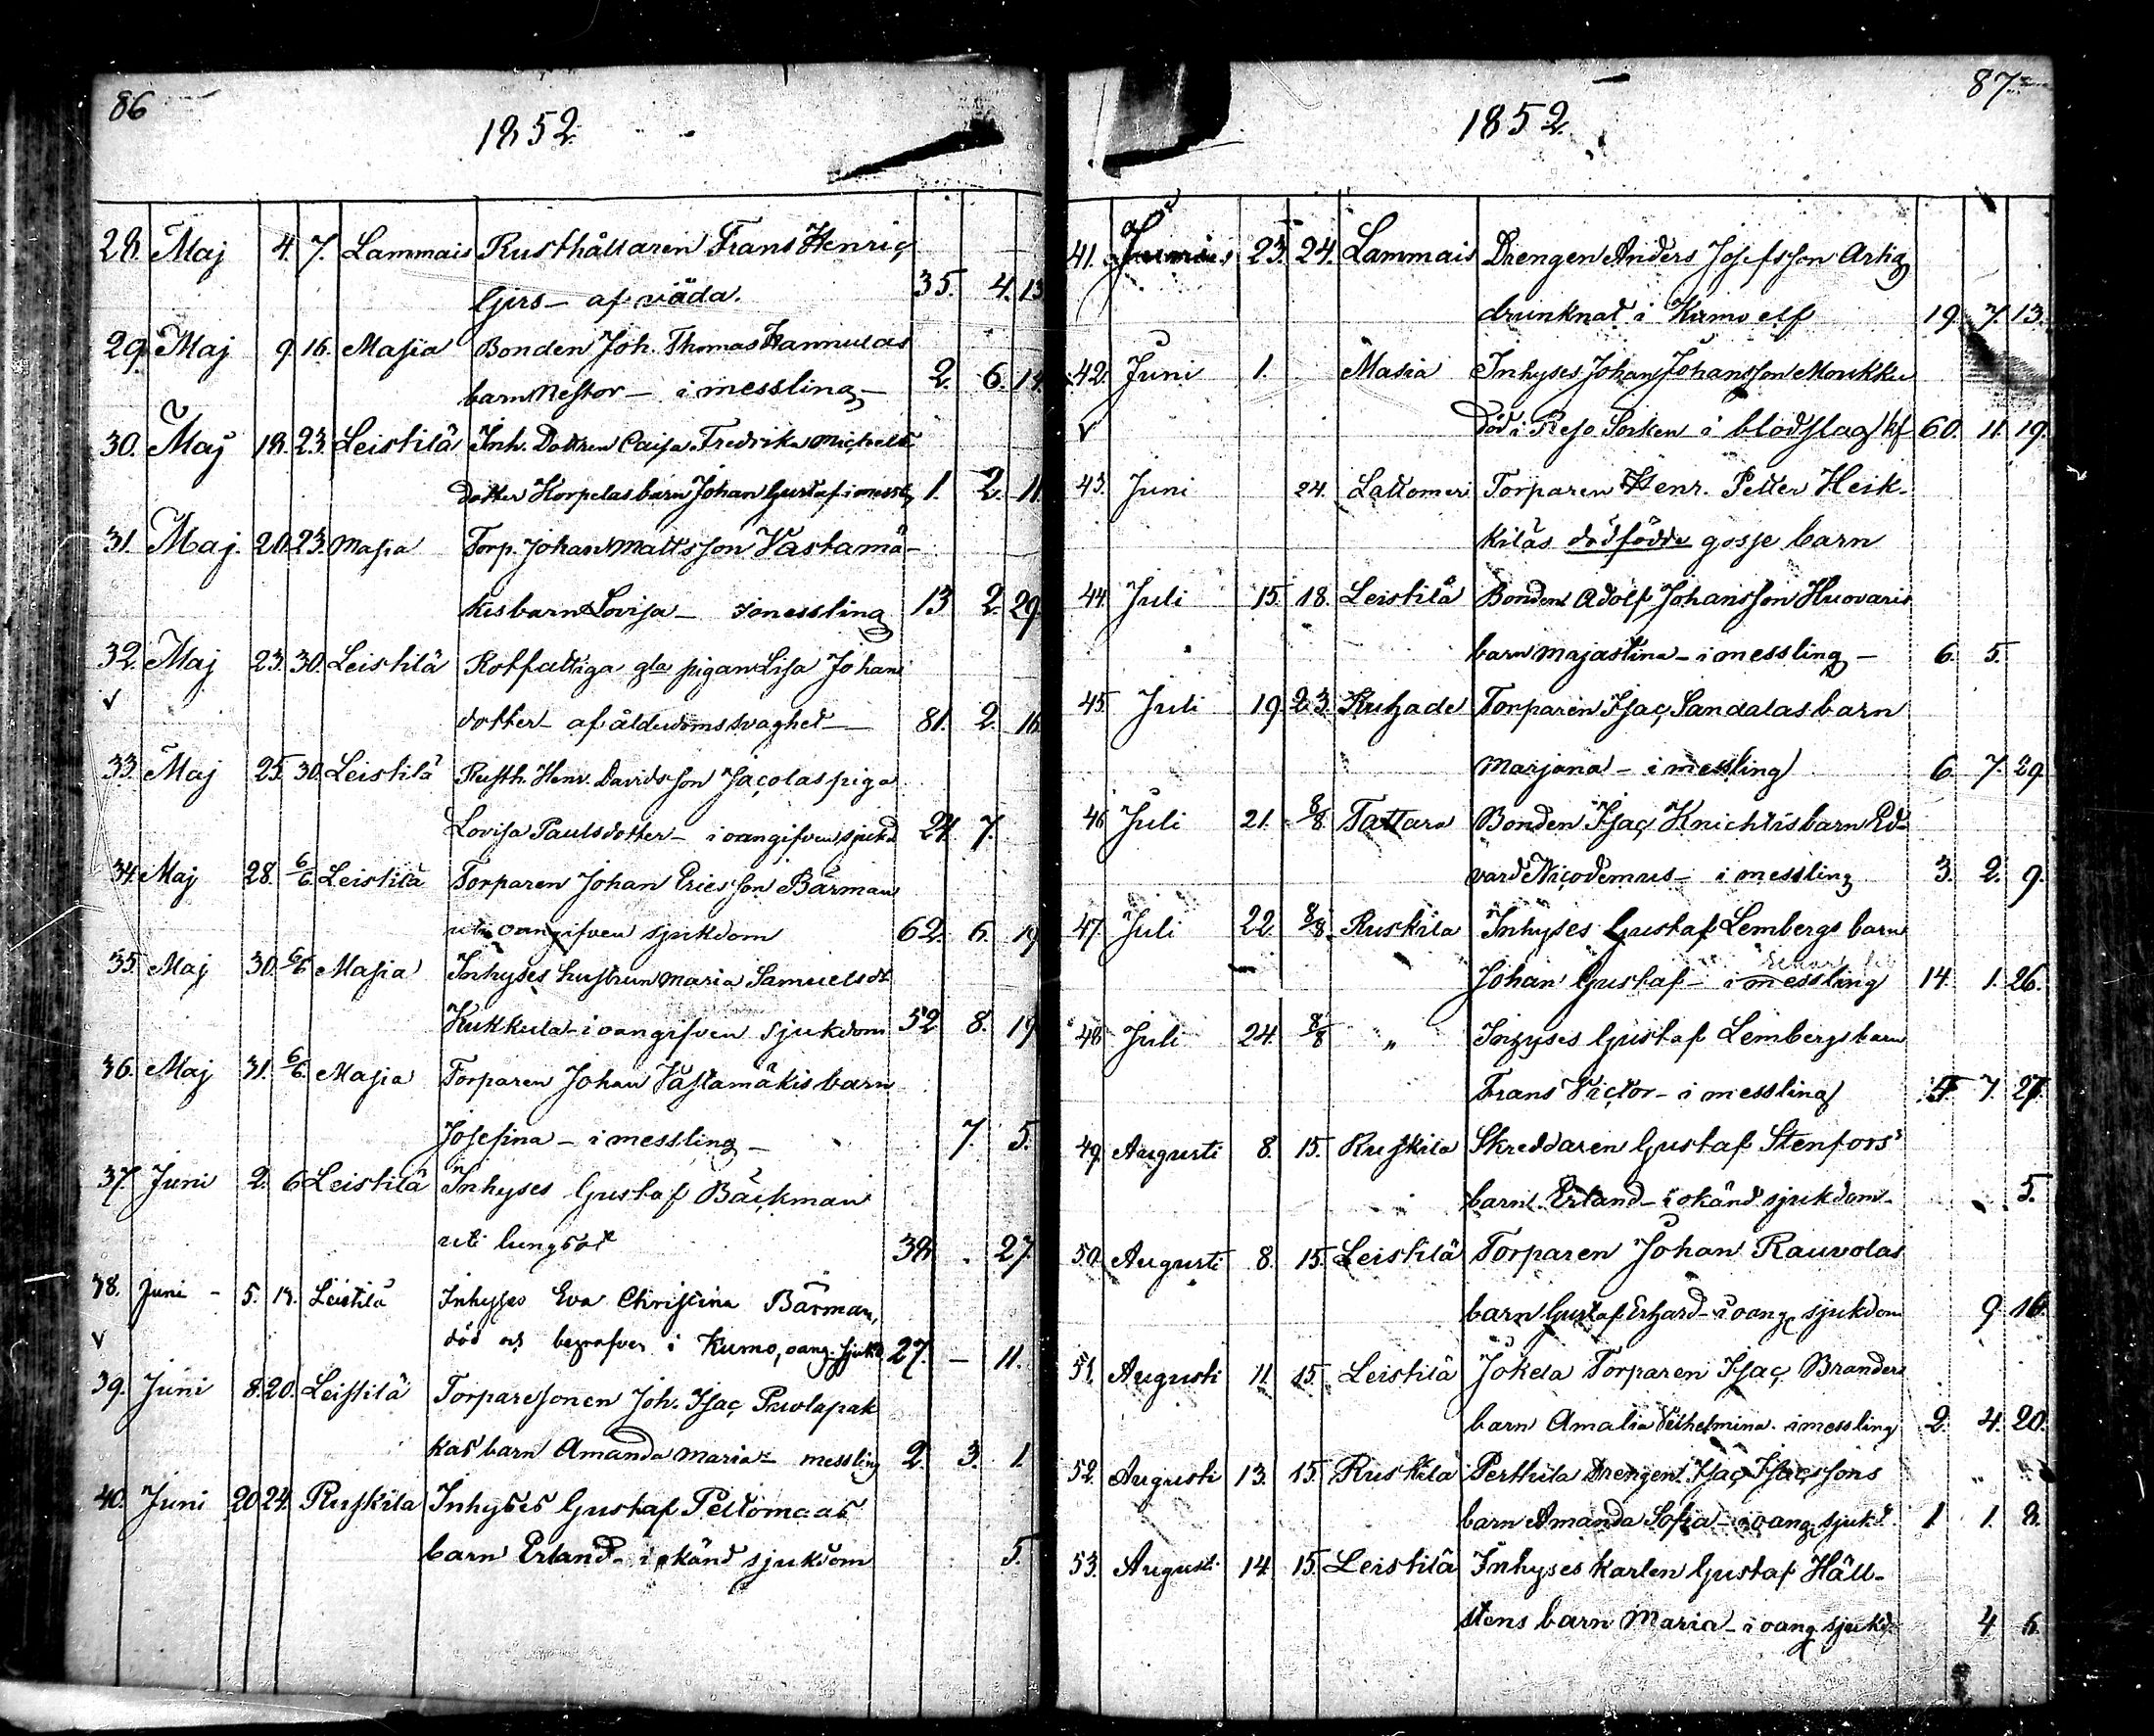 86
1852.
28. Maj 4. 7. Lammais Rusthållaren Frans Henric
Girs - af våda. 35. 4. 13
29. Maj 9. 16. Masia Bonden Joh. Thomas Hannulas
barn Nestor - i messling - 2. 6. 14.
30. Maj 18. 23. Leistilä Inh. Dottren Caisa Fredrika Michels
dotter Korpelas barn Johan Gustaf i messl. 1. 2. 11
31. Maj. 20. 23. Masia Torp. Johan Mattsson Vastamä-
kis barn Lovisa - i messling 13 2. 29.
32. Maj 23. 30. Leistilä Rotfattiga gla pigan Lisa Johans
v dotter - af ålderdomssvaghet - 81. 2. 16
33. Maj 25. 30. Leistilä Rusth. Henr. Davidsson Jacolas piga
Lovisa Paulsdotter - i oangifven sjukd 24. 7.
34. Maj 28. 6/6. Leistilä Torparen Johan Ericsson Bärman
uti oangifven sjukdom 62. 6. 19
35. Maj 30. 6/6 Masia Inhyses hustrun Maria Samuelsdt
Kukkula - i oangifven sjukdom 52 8. 19
36. Maj 31. 6/6. Masia Torparen Johan Västamäkis barn
Josefina - i messling - 7. 5.
37. Juni 2. 6. Leistilä Inhyses Gustaf Bäckman
uti lungsot 38. . 27.
38. Juni - 5. 13. Leistilä Inhyses Eva Christina Bärman,
v död och begrafven i Kumo, oang. sjukd. 27. - 11.
39. Juni 8. 20. Leistilä Torparesonen Joh. Isac Pavolapak
kas barn Amanda Maria - messling 2. 3. 1
40. Juni 20 24. Ruskila Inhyses Gustaf Peltomaas
barn Erland - i okänd sjukdom 5.
87
1852.
41. Maj 23. 24. Lammais Drengen Anders Josefsson Artig
drunknad i Kumo elf 19. 7. 13.
42. Juni 1. Masia Inhyses Johan Johansson Moukku
v död i Reso Socken i blodslag 60. 11. 19.
43. Juni 24. Lattomeri Torparen Henr. Petter Heik-
kiläs dödfödde gosse barn
44. Juli 15. 18. Leistilä Bonden Adolf Johansson Huovaris
barn Majastina - i messling - 6. 5.
45 Juli 19. 23. Kuhade Torparen Isac Sandalas barn
Marjana - i messling 6. 7. 29.
46 Juli 21. 8/8. Tattara Bonden Isac Knichtis barn Ed-
vard Nicodemus - i messling 3. 2. 9.
47 Juli 22. 8/8. Ruskila Inhyses Gustaf Lembergs barn
Johan Gustaf - i messling 14. 1. 26.
48 Juli 24. 8/8 " Inhyses Gustaf Lembergs barn
Frans Victor - i messling 5. 7. 27.
49. Augusti 8. 15. Ruskila Skreddaren Gustaf Stenfors
barn Erland - i okänd sjukdom - 5.
50. Augusti 8. 15. Leistilä Torparen Johan Rauvolas
barn Gustaf Erhard - i oang. sjukdom 9. 16.
51. Augusti 11. 15. Leistilä Jokela Torparen Isac Branders
barn Amalia Vilhelmina - i messling 2. 4. 20.
52. Augusti 13. 15. Ruskila Perttila Drengen Isac Isacssons
barn Amanda Sofia - i oang. sjukd. 1 1. 8.
53. Augusti 14. 15. Leistilä Inhyses karlen Gustaf Häll-
stens barn Maria - i oang. sjukd. 4 6.